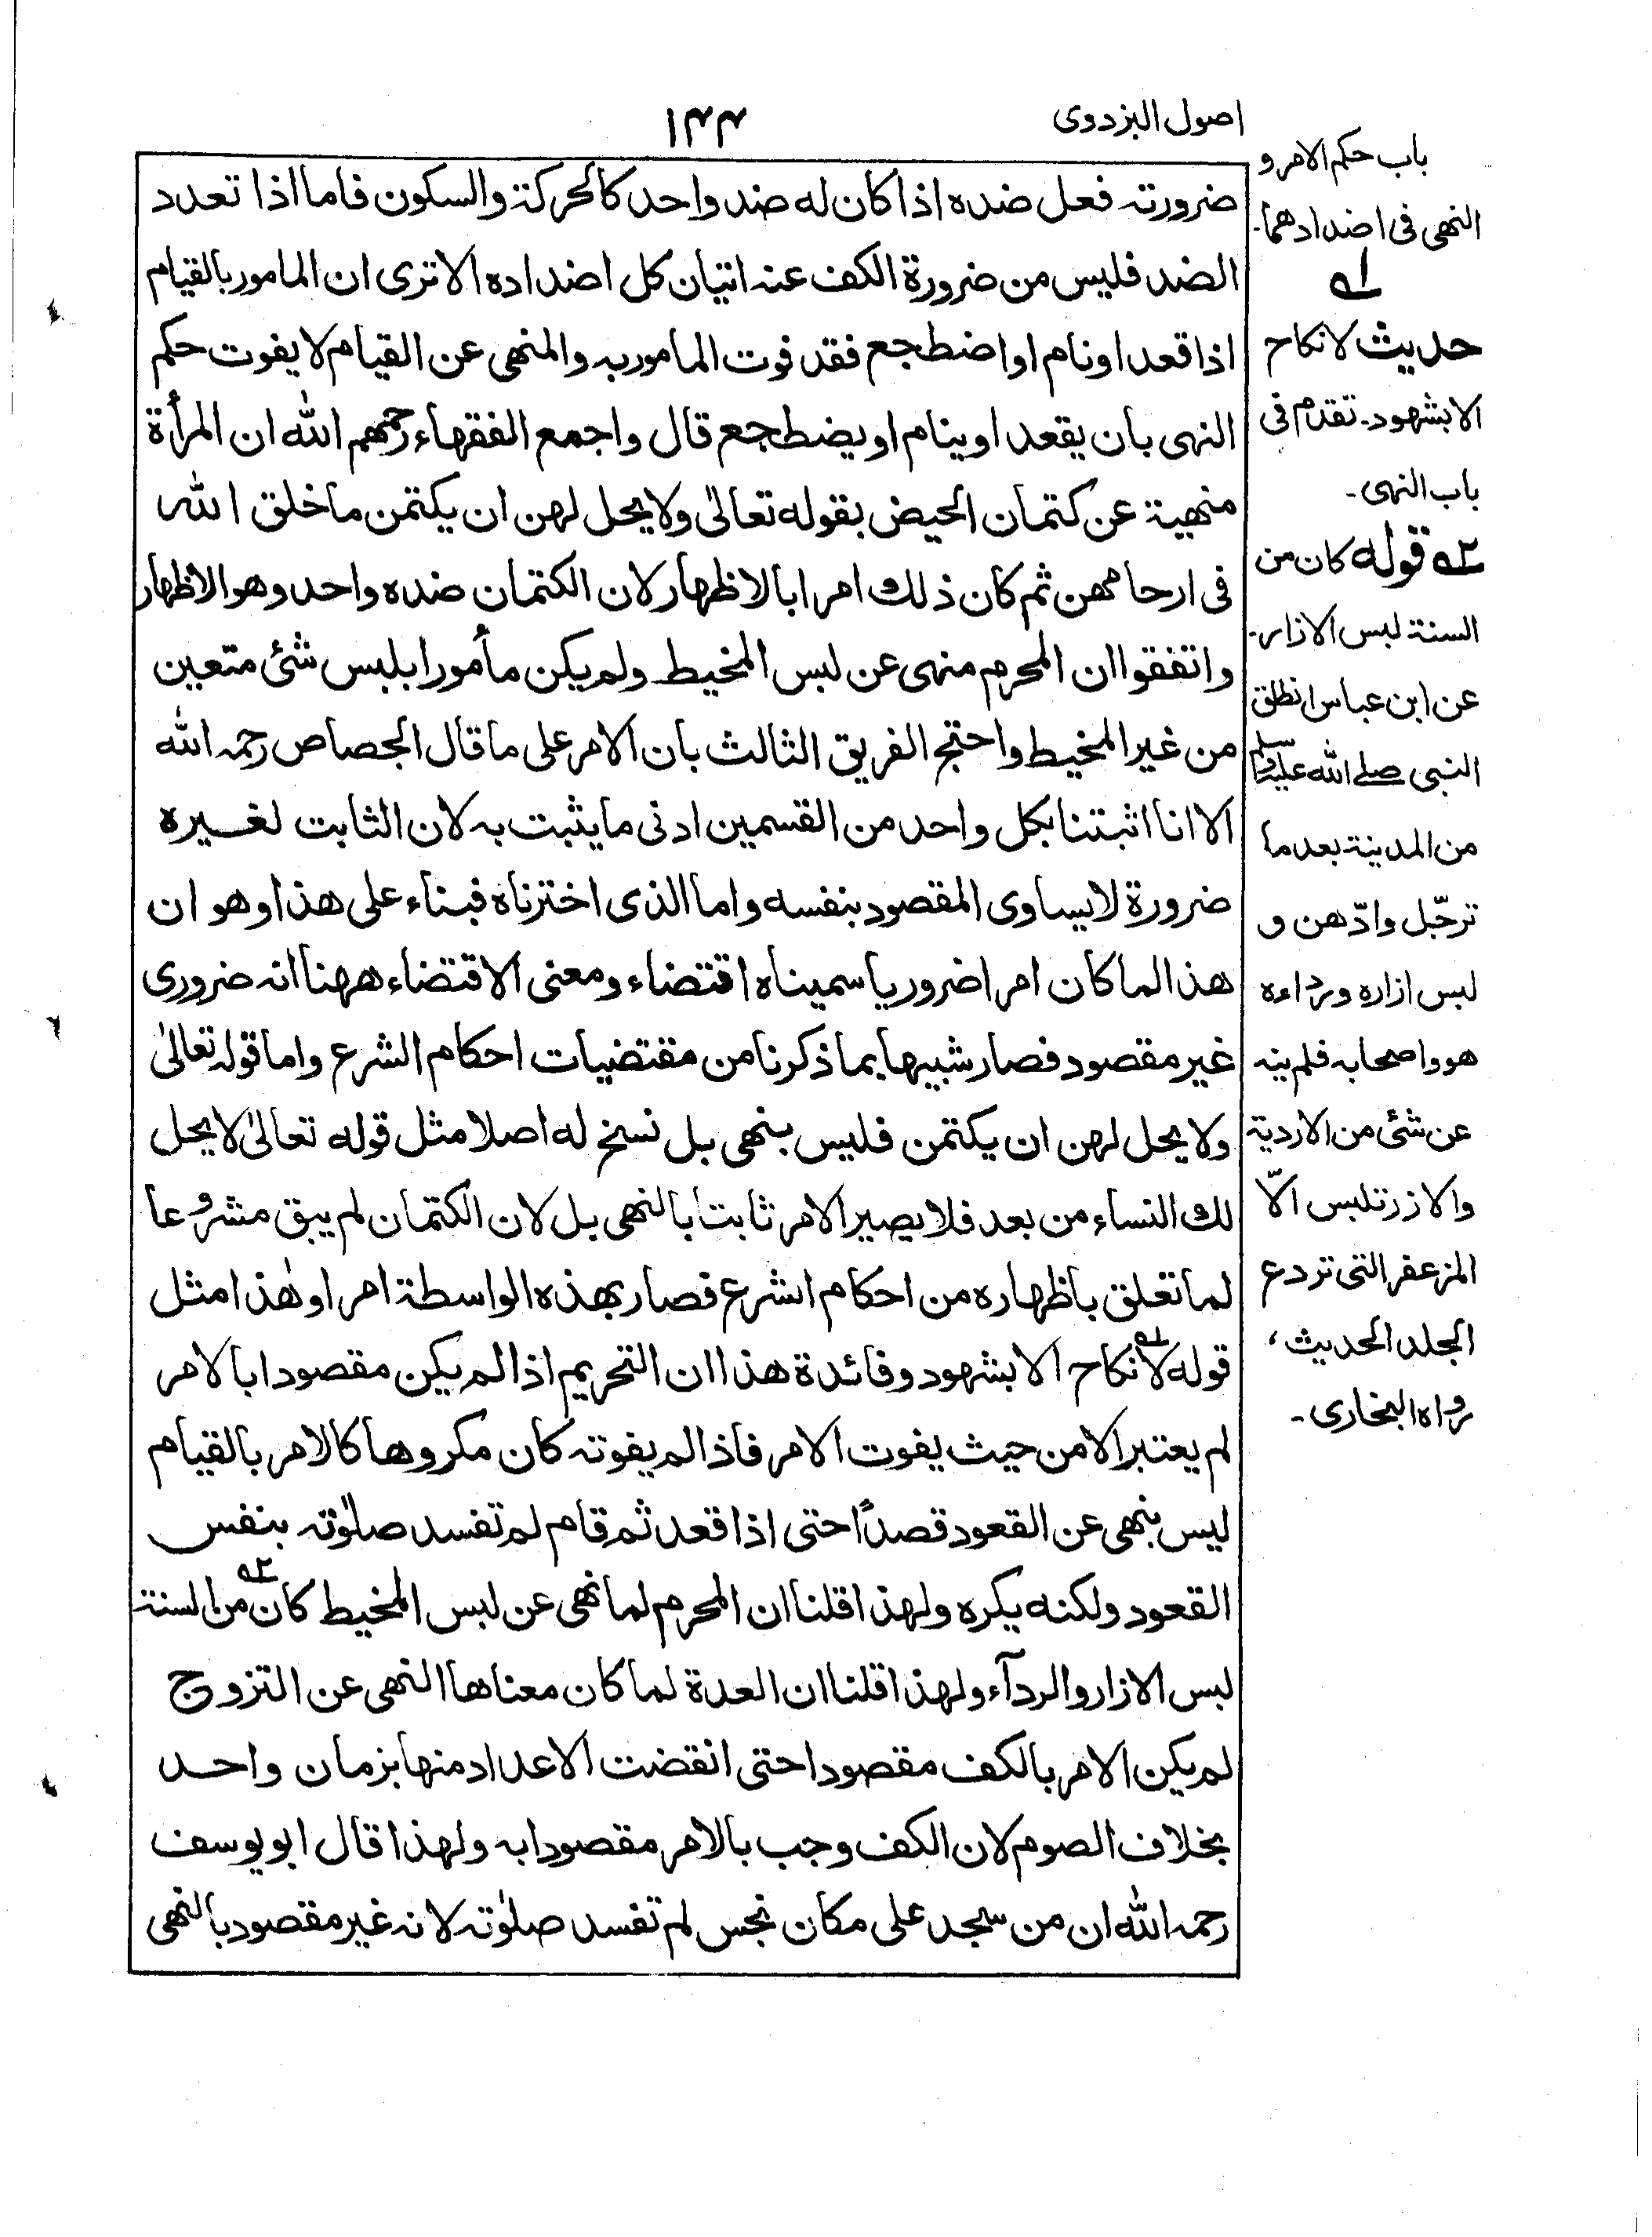 اصول البزدوی
۱۴۴
ضرورته فعل ضده اذا كان له ضد واحد كالحركة والسكون فاما اذا تعدد
الضد فليس من ضرورة الكف عنه اتيان كل اضداده الا ترى ان المامور بالقيام
اذا قعد او نام او اضطجع فقد فوت المامور به والمنهى عن القيام لا يفوت حكم
النهى بأن يقعد او ينام او يضطجع قال واجمع الفقهاء رحمهم الله ان المرأة
منهية عن كتمان الحيض بقوله تعالىٰ ولا يحل لهن ان يكتمن ما خلق الله
فى ارحامهن ثم كان ذلك امرا بالاظهار لان الكتمان ضده واحد وهو الاظهار
واتفقوا ان المحرم منهى عن لبس المخيط ولم يكن مأمورا بلبس شئ متعين
من غير المخيط واحتج الفريق الثالث بأن الامر على ما قال الجصاص رحمه الله
الا انا اثبتنا بكل واحد من القسمين ادنى ما يثبت به لان الثابت لغيره
ضرورة لا يساوى المقصود بنفسه واما الذى اخترناه فبناء على هذا وهو ان
هذا لما كان امرا ضروريا سميناه اقتضاء ومعنى الاقتضاء ههنا انه ضرورى
غير مقصود فصار شبيها بما ذكرنا من مقتضيات احكام الشرع واما قوله تعالىٰ
ولا يحل لهن ان يكتمن فليس بنهى بل نسخ له اصلا مثل قوله تعالىٰ لا يحل
لك النساء من بعد فلا يصير الامر ثابتا بالنهى بل لان الكتمان لم يبق مشروعا
لما تعلق بأظهاره من احكام الشرع فصار بهذه الواسطة امرا وهٰذا مثل
قوله لا۱ه نكاح الا بشهود وفائدة هذا ان التحريم اذا لم يكن مقصودا بالامر
لم يعتبر الا من حيث يفوت الامر فاذا لم يفوته كان مكروها كالامر بالقيام
ليس بنهى عن القعود قصدًا حتى اذا قعد ثم قام لم تفسد صلوٰته بنفس
القعود ولكنه يكره ولهذا قلنا ان المحرم لما نهى عن لبس المخيط كان۲ه من السنة
لبس الازار والردآء ولهذا قلنا ان العدة لما كان معناها النهى عن التزوج
لم يكن الامر بالكف مقصودا حتى انقضت الاعداد منها بزمان واحد
بخلاف الصوم لان الكف وجب بالامر مقصودا به ولهذا قال ابو يوسف
رحمه الله ان من سجد على مكان نجس لم تفسد صلوٰته لانه غير مقصود بالنهى
باب حكم الامر و
النهى فى اضدادهما۔
۱ه
حديث لا نكاح
الا بشهود۔ تقدم فى
باب النهى۔
۲ه قوله كان من
السنة لبس الازار۔
عن ابن عباس انطلق
النبى صلے الله عليه وسلم
من المدينة بعد ما
ترجّل وادّهن و
لبس ازاره ورداءه
هو واصحابه فلم ينه
عن شئ من الاردية
والازر تلبس الاّ
المزعفر التى تردع
الجلد الحديث،
رواه البخارى۔